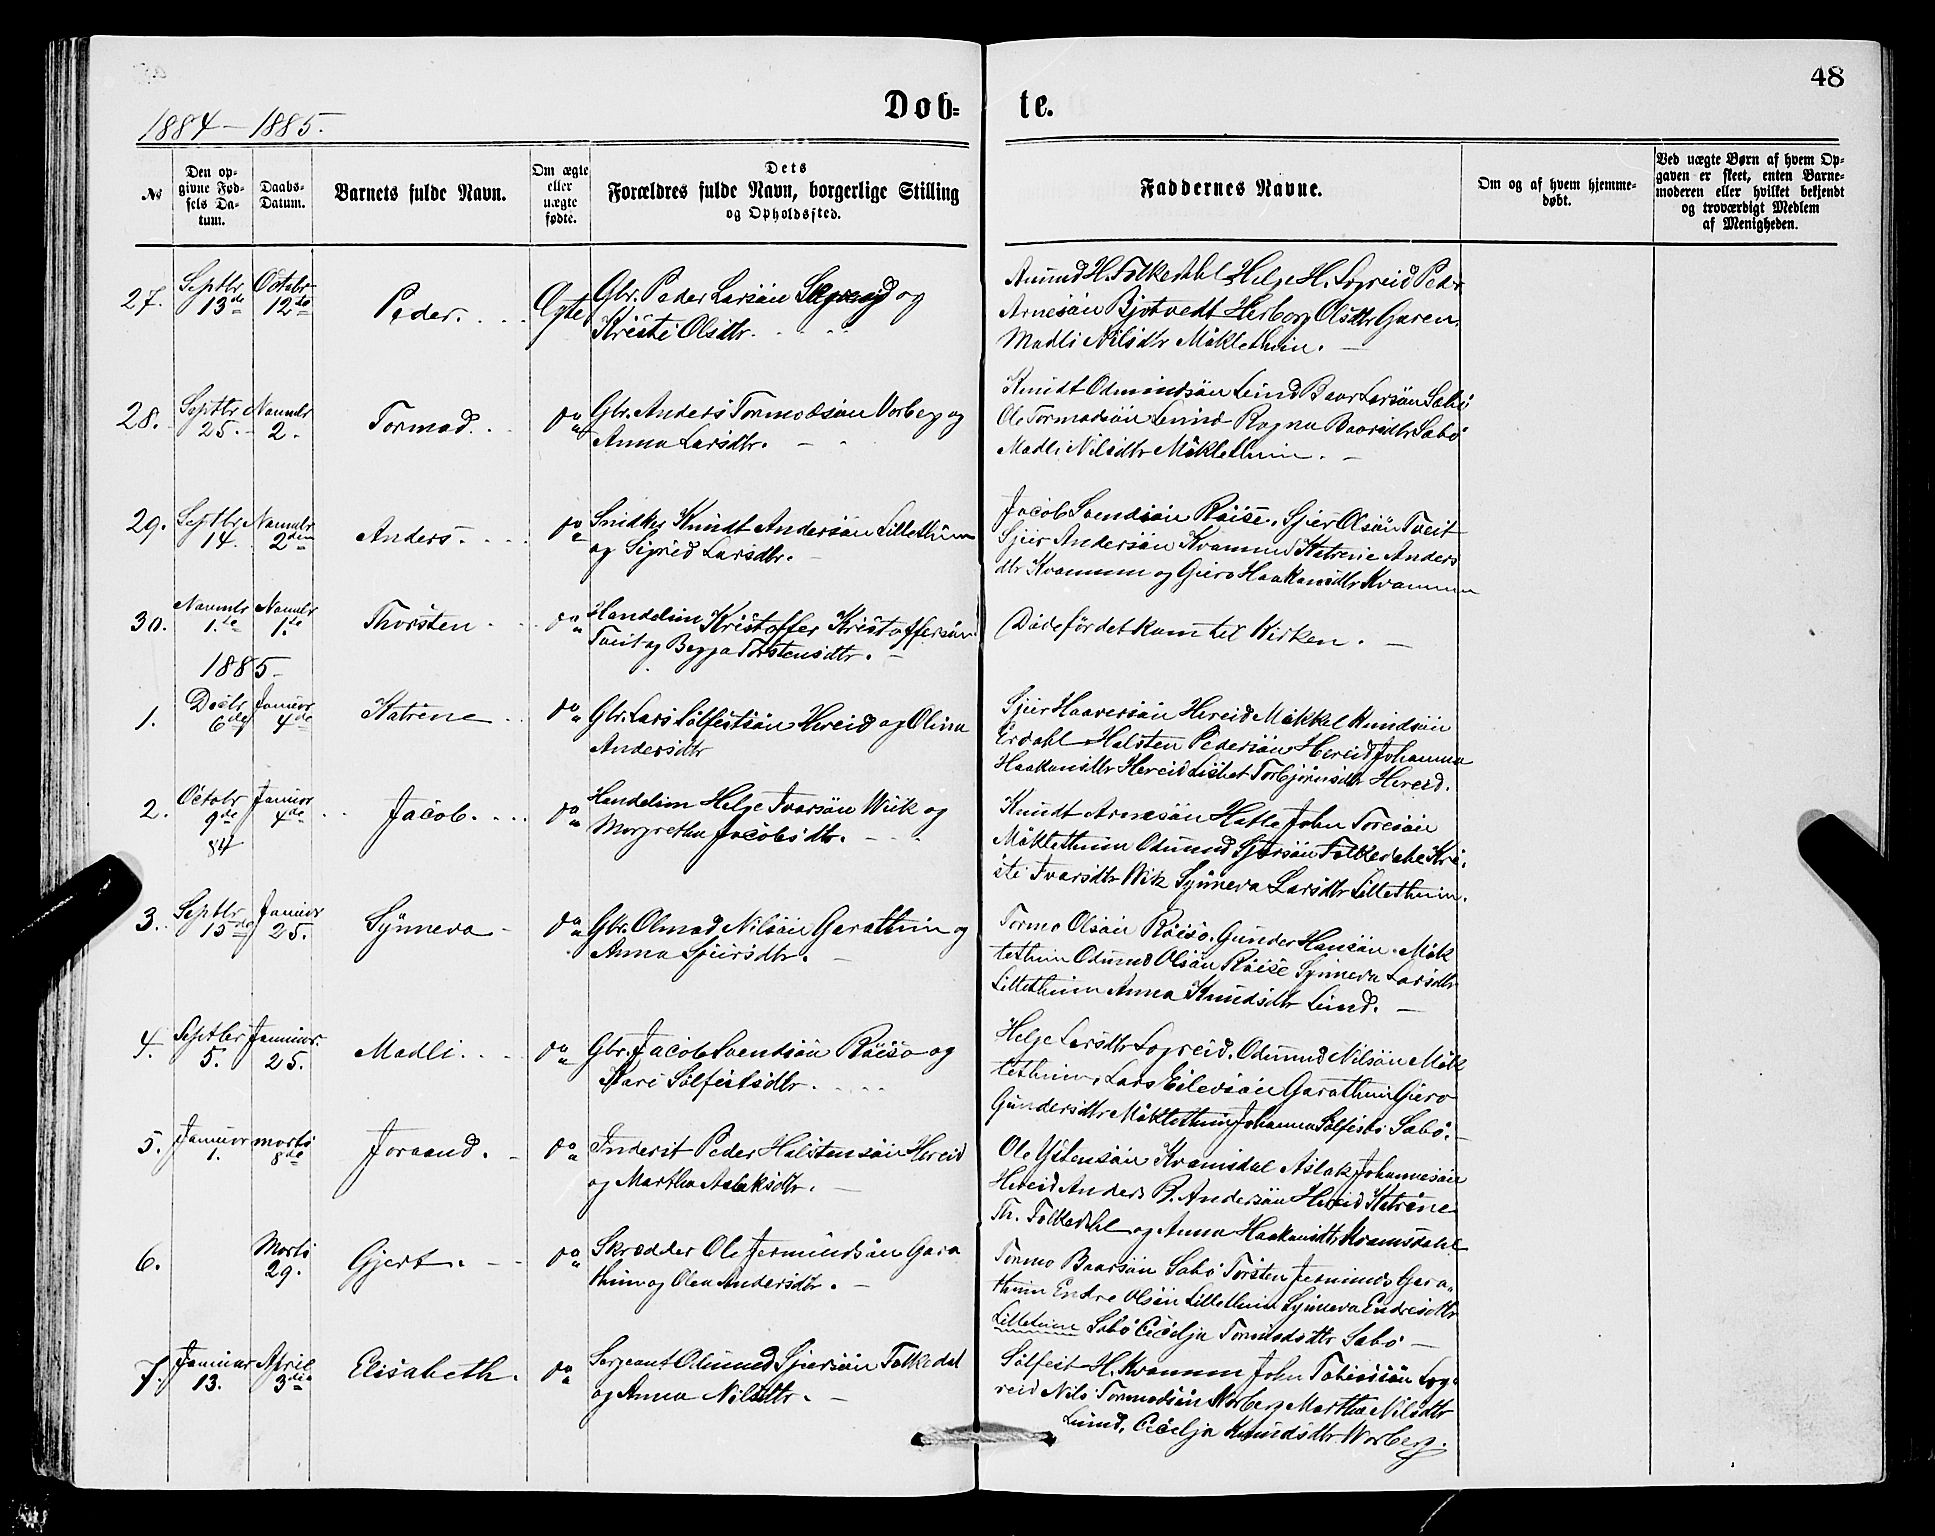 48
Døb-te.
1884 – 1885.
№
Den op-
givne Fød-
sels Da-
tum.
Daabs-
Datum.
Barnets fulde Navn.
Om ægte
eller
uægte
fødte.
Dets
Forældres fulde Navn, borgerlige Stilling
og Opholdssted.
Faddernes Navne.
Om og af hvem hjemme-
døbt.
Ved uægte Børn af hvem Op-
gaven er skeet, enten Barne-
moderen eller hvilket bekjendt
og troværdigt Medlem
af Menigheden.
27. Septbr 13de Octobr 12te Peder. Ægte Gbr. Peder Larsön og
Kristi Olsdtr.
Amund H. Folkedahl Helje H. Sogreid Peder
Arnesön Bjotvedt Herborg Olsdtr Garen.
Madli Nilsdtr Möklethun. —
28. Septbr 25. Novmbr 2. Tormod. do Gbr. Anders Tormodsön Vorberg og
Anna Larsdtr. —
Knudt Odmundsön Lund Baar Larsön Sæbö
Ole Tormodsön Lund Ragna Baarsdtr Säbö
Madli Nilsdtr Möklethun. —
29. Septbr 14. Novmbr 2den Anders. do Snidker Knudt Andersön Lillethun
og Sigrid Larsdtr. —
Jacob Svendsön Röise. Sjur Olsön Tveit
Sjur Andersön Kvammen Katrine Anders
dtr Kvammen og Guro Haakonsdtr Kvammen
30. Novmbr 1.te Novmbr 1.te Thorsten. do Handelsm Kristoffer Kristoffersön
Tveit og Begga Torstensdtr. —
Döde för det kom til Kirken. —
1885
1. Decbr 6de Januar 4de Katrine do Gbr. Lars Sölfestsön Hereid og Olina
Andersdtr
Sjur Haaversön Hereid Mökkel Knudsön
Erdahl Halsten Pedersön Hereid Johanna
Haakonsdtr Hereid Lisbet Torbjörnsdtr Hereid.
2. Octobr 9de 84 Januar 4de Jacob. do Handelsm Helje Ivarsön Wiik og
Margretha Jacobsdtr. —
Knudt Arnesön Halle John Toresön
Mökletthun Odmund Sjursön Folkedahl Kri-
sti Ivarsdtr Wik Synneva Larsdtr Lillethun.
3. Septbr 15de Januar 25. Synneva do Gbr. Olmod Nilsön Garathun og
Anna Sjursdtr. —
Tormo Olsön Röiso. Gunder Hansön Mök
lethun Odmund Olsön Röise Synneva Larsdtr
Lillethun Anna Knudsdtr Lund. —
4. Septber 5. Januar 25. Madli. do Gbr. Jacob Svendsön Röiso og
Kari Sölfestsdtr.
Helje Larsdtr Sogreid. Odmund Nilsön Mök
lethun, Lars Eilevsön Garathun Guro
Gundersdtr Möklethun Johanna Sölfests Sæbö.
5. Januar 1. Marts 8de Joraand. do Inderst Peder Halstensön Hereid
og Martha Aslaksdtr. —
Ole Ystensön Kvamsdal Aslak Johannesön
Hereid Anders B. Andersön Hereid Katrine
Th. Folkedahl og Anna Haakonsdtr Kvamsdahl
6. Marts 29. Gjert. do Skrædder Ole Jermundsön Gara
thun og Olea Andersdtr. —
Tormo Baarsön Säbö Torsten Jermunds Gara-
thun Endre Olsön Lillethun Synneva Endresdtr
Lillethun Säbö Cicelja Tormodsdtr Säbö —
7. Januar 13. April 3die Elisabeth. do Sergeant Odmund Sjursön Folkedal
og Anna Nilsdtr. —
Sölfest H. Kvammen John Tobiassön Sog-
reid Nils Tormodsön Vorberg Martha Nilsdtr
Lund, Cicelja Knudsdtr Worberg.